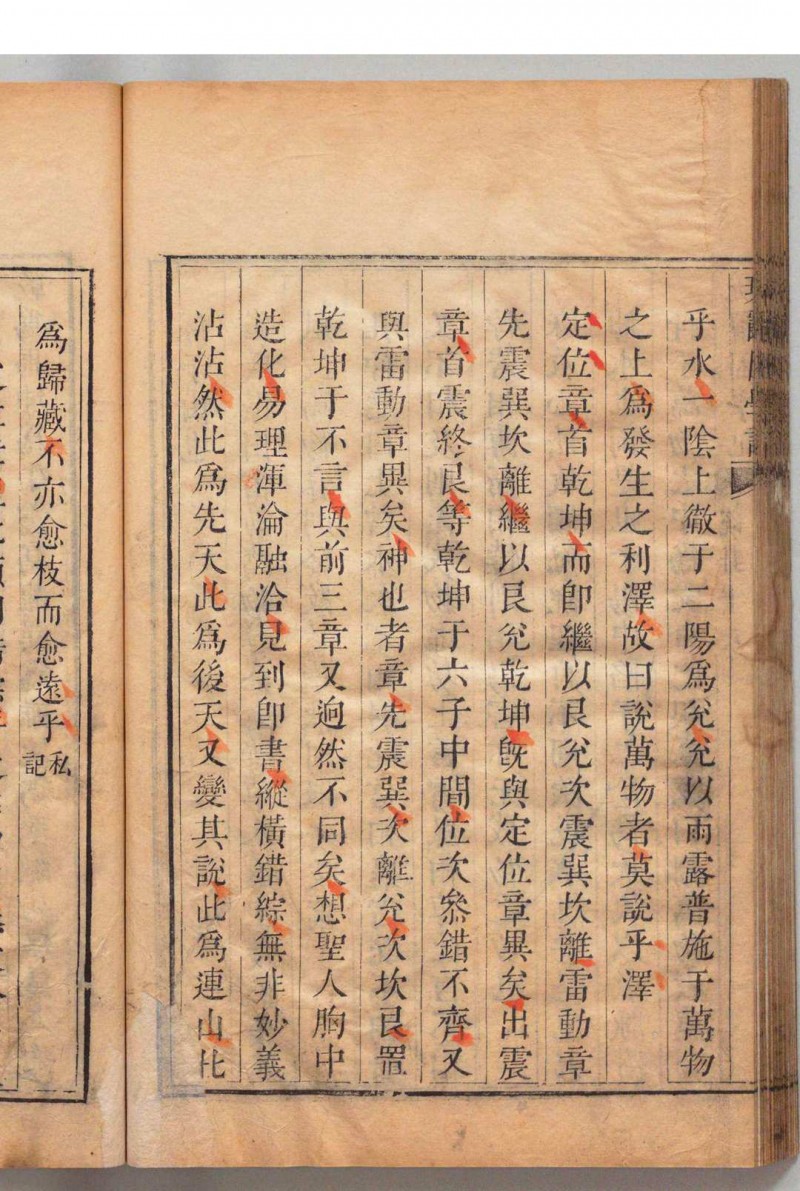 乎水一陰上徹于二陽爲兊兊以雨露普施于萬物
之上爲發生之利澤故曰說萬物者莫說乎澤
定位章首乾坤而卽繼以艮兊次震巽坎離雷動章
先震巽坎離繼以艮兊乾坤旣與定位章異矣出震
章首震終艮等乾坤于六子中間位次叅錯不齊又
與雷動章異矣神也者章先震巽次離兊次坎艮置
乾坤于不言與前三章又逈然不同矣想聖人胸中
造化易理渾淪融洽見到卽書縱橫錯綜無非妙義
沾沾然此爲先天此爲後天又變其說此爲連山此
爲歸藏不亦愈枝而愈遠乎
私
記